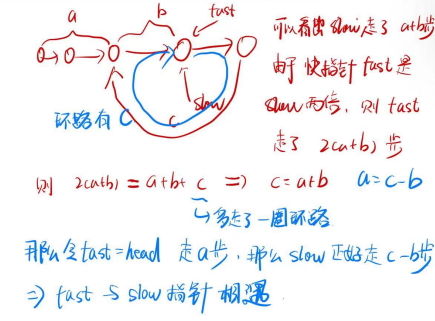 a
b
fast
slow
c
环路有C
可以看出 slow 走了 a+b步
由于 快指针 fast 是
slow 两倍，则 fast
走了 2(a+b) 步
则 2(a+b) = a+b+ c => c=a+b a=c-b
↳多走了一圈环路
那么令fast=head 走a步，那么 slow 正好走 c-b步
=> fast 与 slow 指针 相遇.